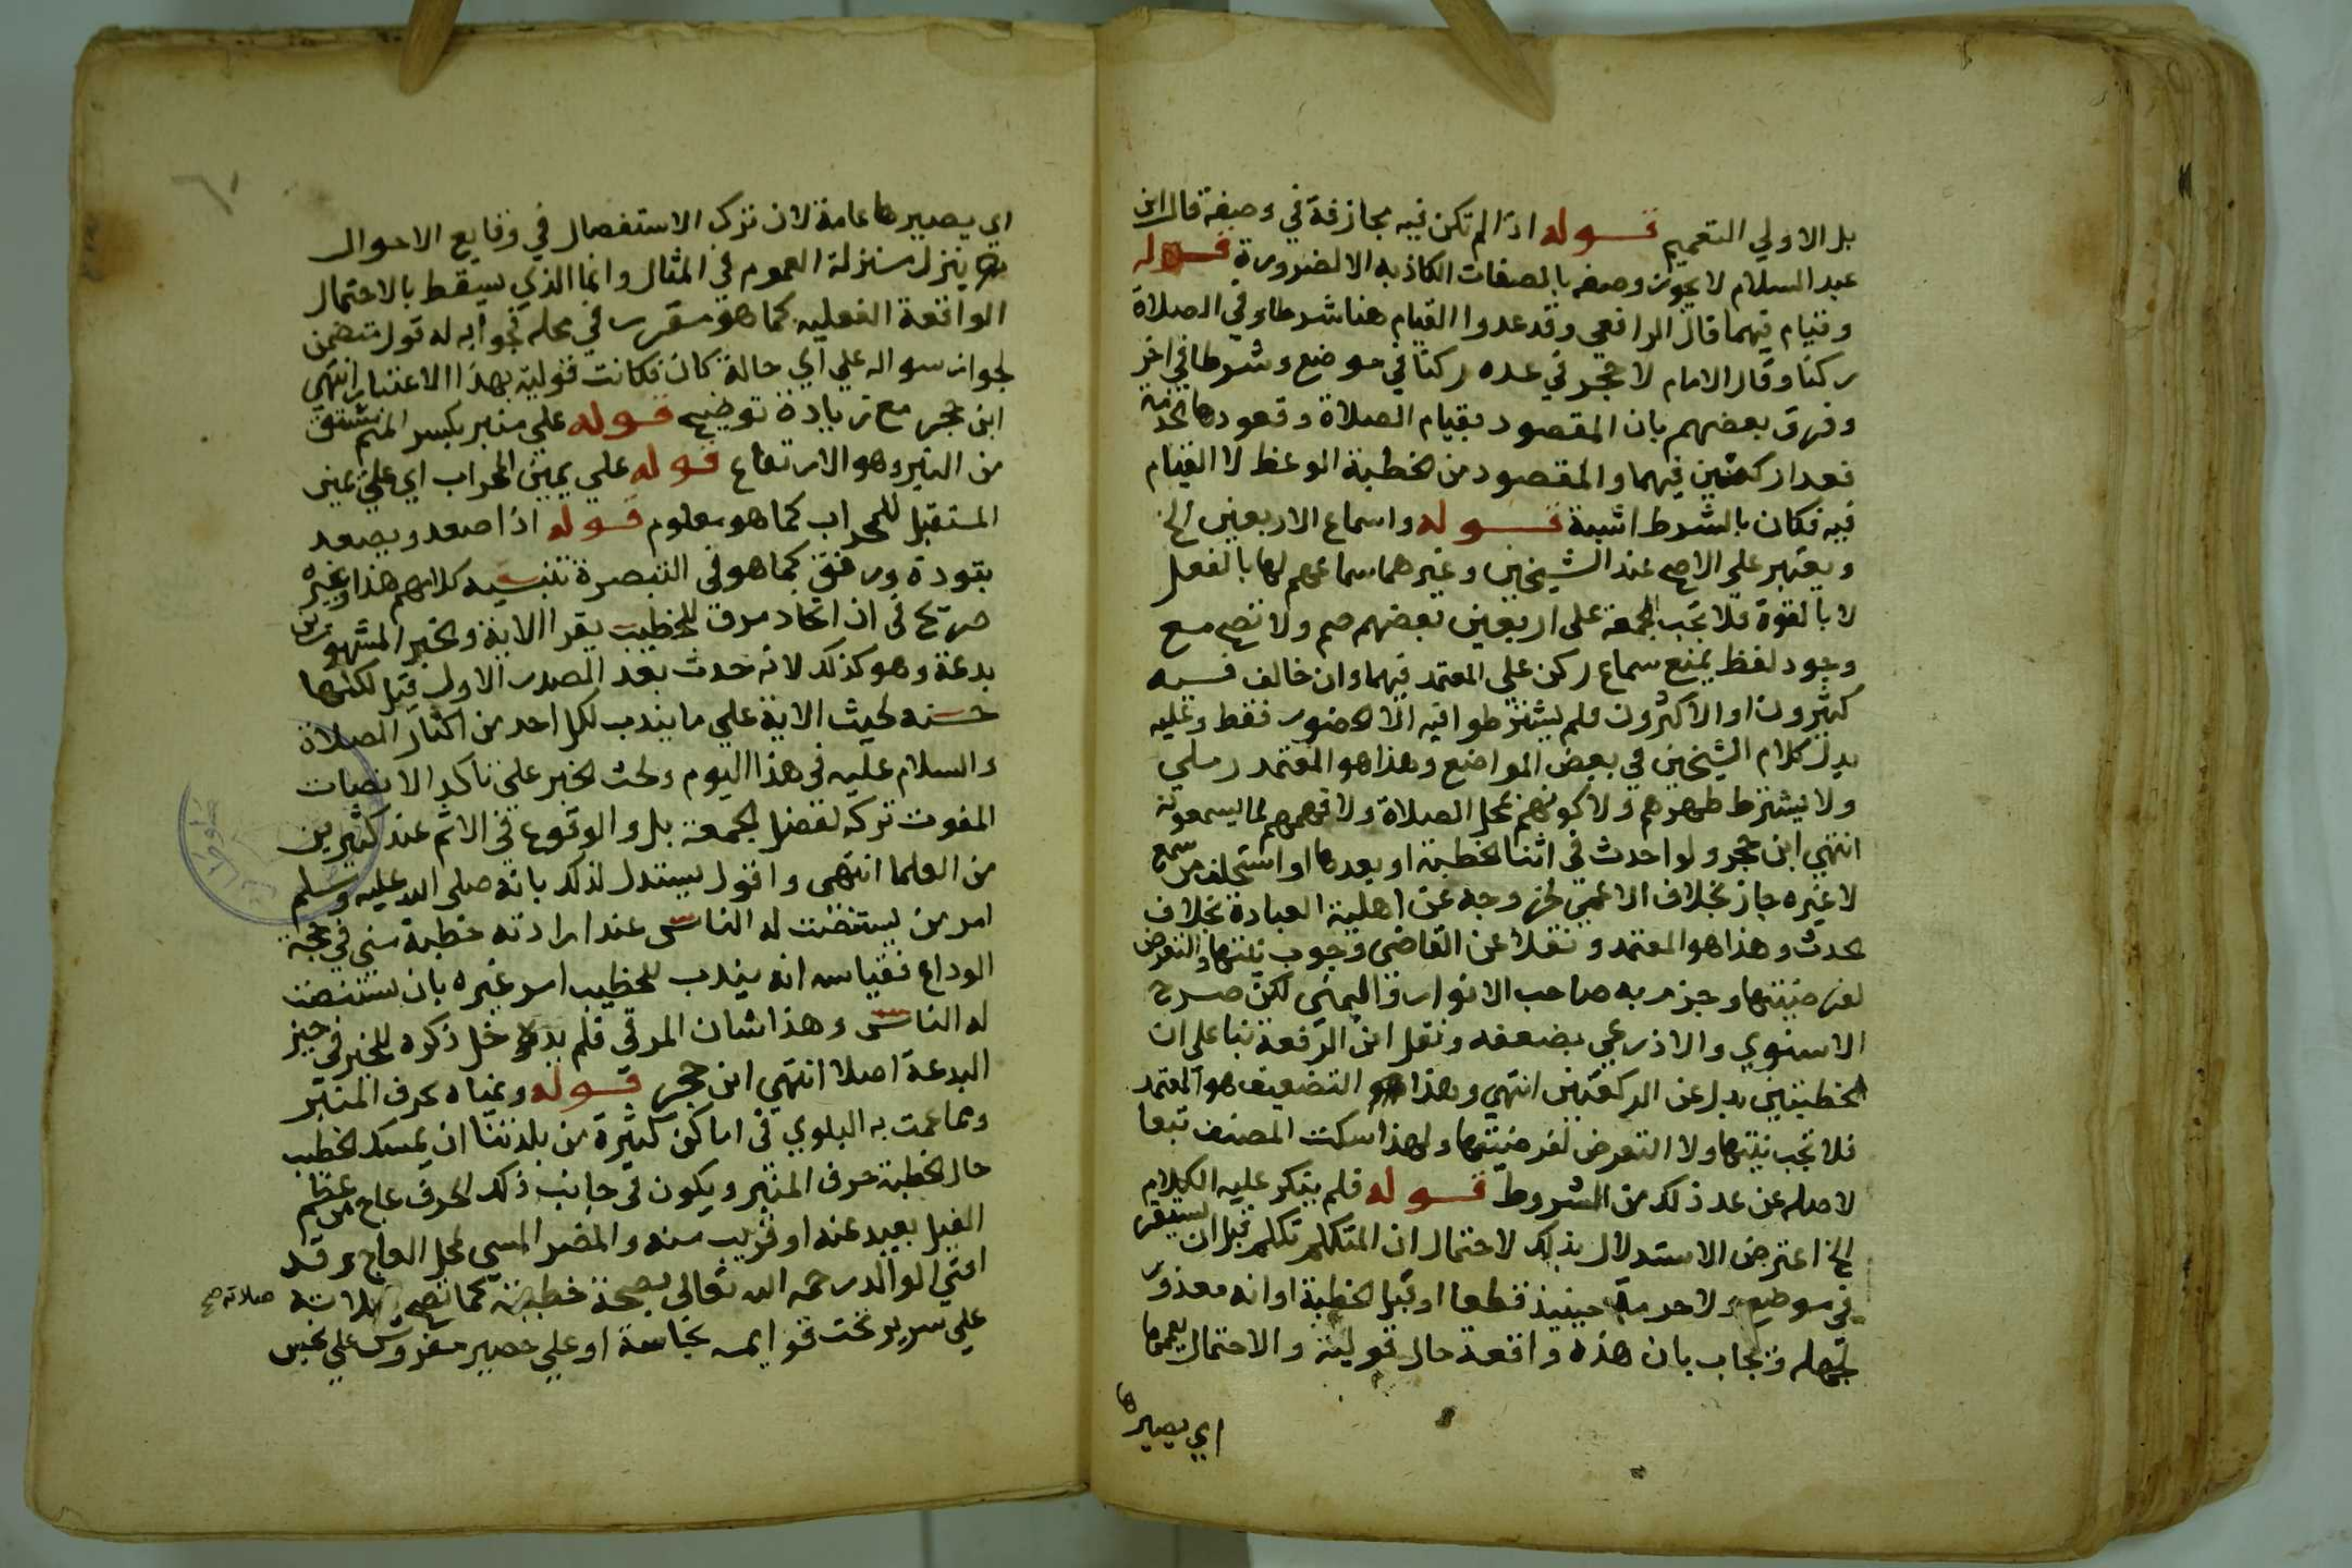 بل الاولي التعميم قوله اذا لم تكن فيه مجازفة في وصفه قال ابن
عبد السلام لا يجوز وصفه بالصفات الكاذبه الا لضرورة قوله
وقيام فيهما قال الرافعي وقد عدوا القيام هنا شرطا وفي الصلاة
ركنا وقال الامام لا حجر في عده ركنا في موضع وشرطا في اخر
وفرق بعضهم بان المقصود بقيام الصلاة وقعودها الخدمة
فعدا ركنين فيهما والمقصود من الخطبة الوعظ لا القيام
فيه فكان بالشرط اشبه قوله واسماع الاربعين الخ
ويعتبر علي الاصح عند الشيخين وغيرهما سماعهم لها بالفعل
لا بالقوة فلا تجب الجمعة على اربعين بعضهم صم ولا تصح مع
وجود لغط يمنع سماع ركن علي المعتمد فيهما وان خالف فيه
كثيرون او الاكثرون فلم يشترطوا فيه الا الحضور فقط وعليه
يدل كلام الشيخين في بعض المواضع وهذا هو المعتمد رملي
ولا يشترط طهرهم ولا كونهم بمحل الصلاة ولا فهمهم لما يسمعونه
انتهي ابن حجر ولو احدث في اثنا الخطبة او بعدها او استخلف من سمع
لا غيره جاز بخلاف الاغمي لخروجه عن اهلية العبادة بخلاف
المحدث وهذا هو المعتمد ونقلا عن القاضي وجوب نيتها والتعرض
لفرضيتها وجزم به صاحب الانوار واليمني لكن صرح
الاسنوي والاذرعي بضعفه ونقل ابن الرفعة بناء على ان
الخطبتين بدل عن الركعتين انتهي وهذا التضعيف هو المعتمد
فلا تجب نيتها ولا التعرض لفرضيتها ولهذا سكت المصنف تبعا
لاصله عن عد ذلك من الشروط قوله فلم ينكر عليه الكلام
الخ اعترض الاستدلال بذلك لاحتمال ان المتكلم تكلم قبل ان يستقر
في موضع ولا حرمة حينيذ قطعا او قبل الخطبة او انه معذور
بجهله ويجاب بان هذه واقعة حال قولية والاحتمال يعمها
اي يصيرها
اي يصيرها عامة لان ترك الاستفصال في وقايع الاحوال
ينزل منزلة العموم في المثال وانما الذي يسقط بالاحتمال
الواقعة الفعليه كما هو مقرر في محله فجوابه له قول متضمن
لجواز سواله علي اي حالة كان فكانت قولية بهذا الاعتبار انتهي
ابن حجر مع زيادة توضيح قوله علي منبر بكسر الميم مشتق
من النبر وهو الارتفاع قوله علي يمين المحراب اي علي يمين
المستقبل للمحراب كما هو معلوم قوله اذا صعد ويصعد
بتودة ورفق كما هو في التبصرة تنبيه كلامهم هذا وغيره
صريح في ان اتخاذ مرق للخطيب يقرا الاية والخبر المشهورين
بدعة وهو كذلك لانه حدث بعد الصدر الاول قيل لكنها
حسنه لحيث الاية علي ما يندب لكل احد من اكثار الصلاة
والسلام عليه في هذا اليوم ولحث الخبر علي تاكد الانصات
المفوت تركه لفضل الجمعة بل والوقوع في الاثم عند كثيرين
من العلما انتهي واقول يستدل لذلك بانه صلى الله عليه وسلم
امر من يستنصت له الناس عند ارادته خطبة مني في حجة
الوداع فقياسه انه يندب للخطيب امر غيره بان يستنصت
له الناس وهذا شان المرقي فلم يدخل ذكره للخبر في حيز
البدعة اصلا انتهي ابن حجر قوله ويمناه بحرف المنبر
ومما عمت به البلوي في اماكن كثيرة من بلدتنا ان يمسك الخطيب
حال الخطبة حرف المنبر ويكون في جانب ذلك الحرف عاج من عظم
الفيل بعيد عنه او قريب منه والمضر المس لمحل العاج وقد
افتي الوالد رحمه الله تعالى بصحة خطبته كما تصح صلاته
صلاته صح
علي سرير تحت قوايمه نجاسة او علي حصير مفروش علي نجس